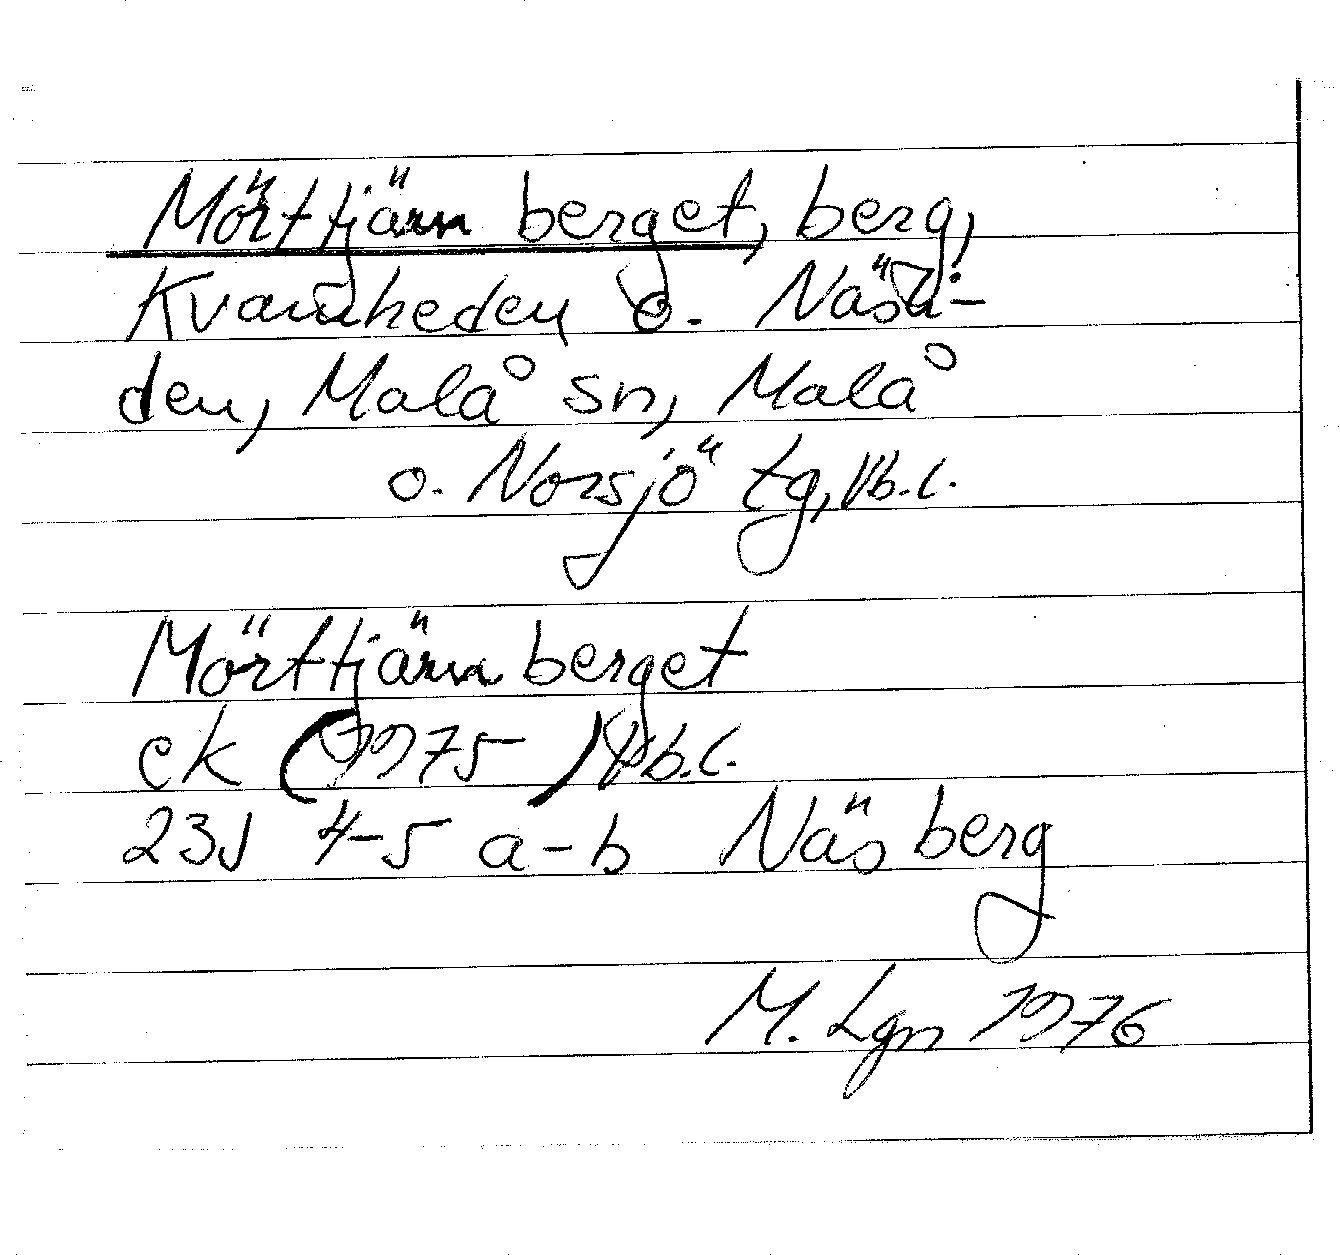 Mörttjärnberget, berg,
Kvarnheden o. Näsli-
den, Malå sn, Malå
o. Norsjö tg, Vb.l.
Mörttjärnberget
ek (1975) Vb.l.
23J 4-5 a-b Näsberg
M. Lgn 1976